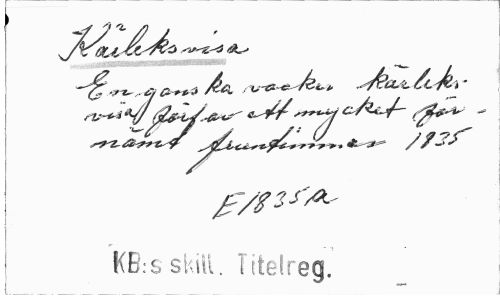 Kärleksvisa
En ganska vacker kärleks-
visa förf av ett mycket för-
nämt fruntimmer 1835
E1835a
KB:s skill. Titelreg.